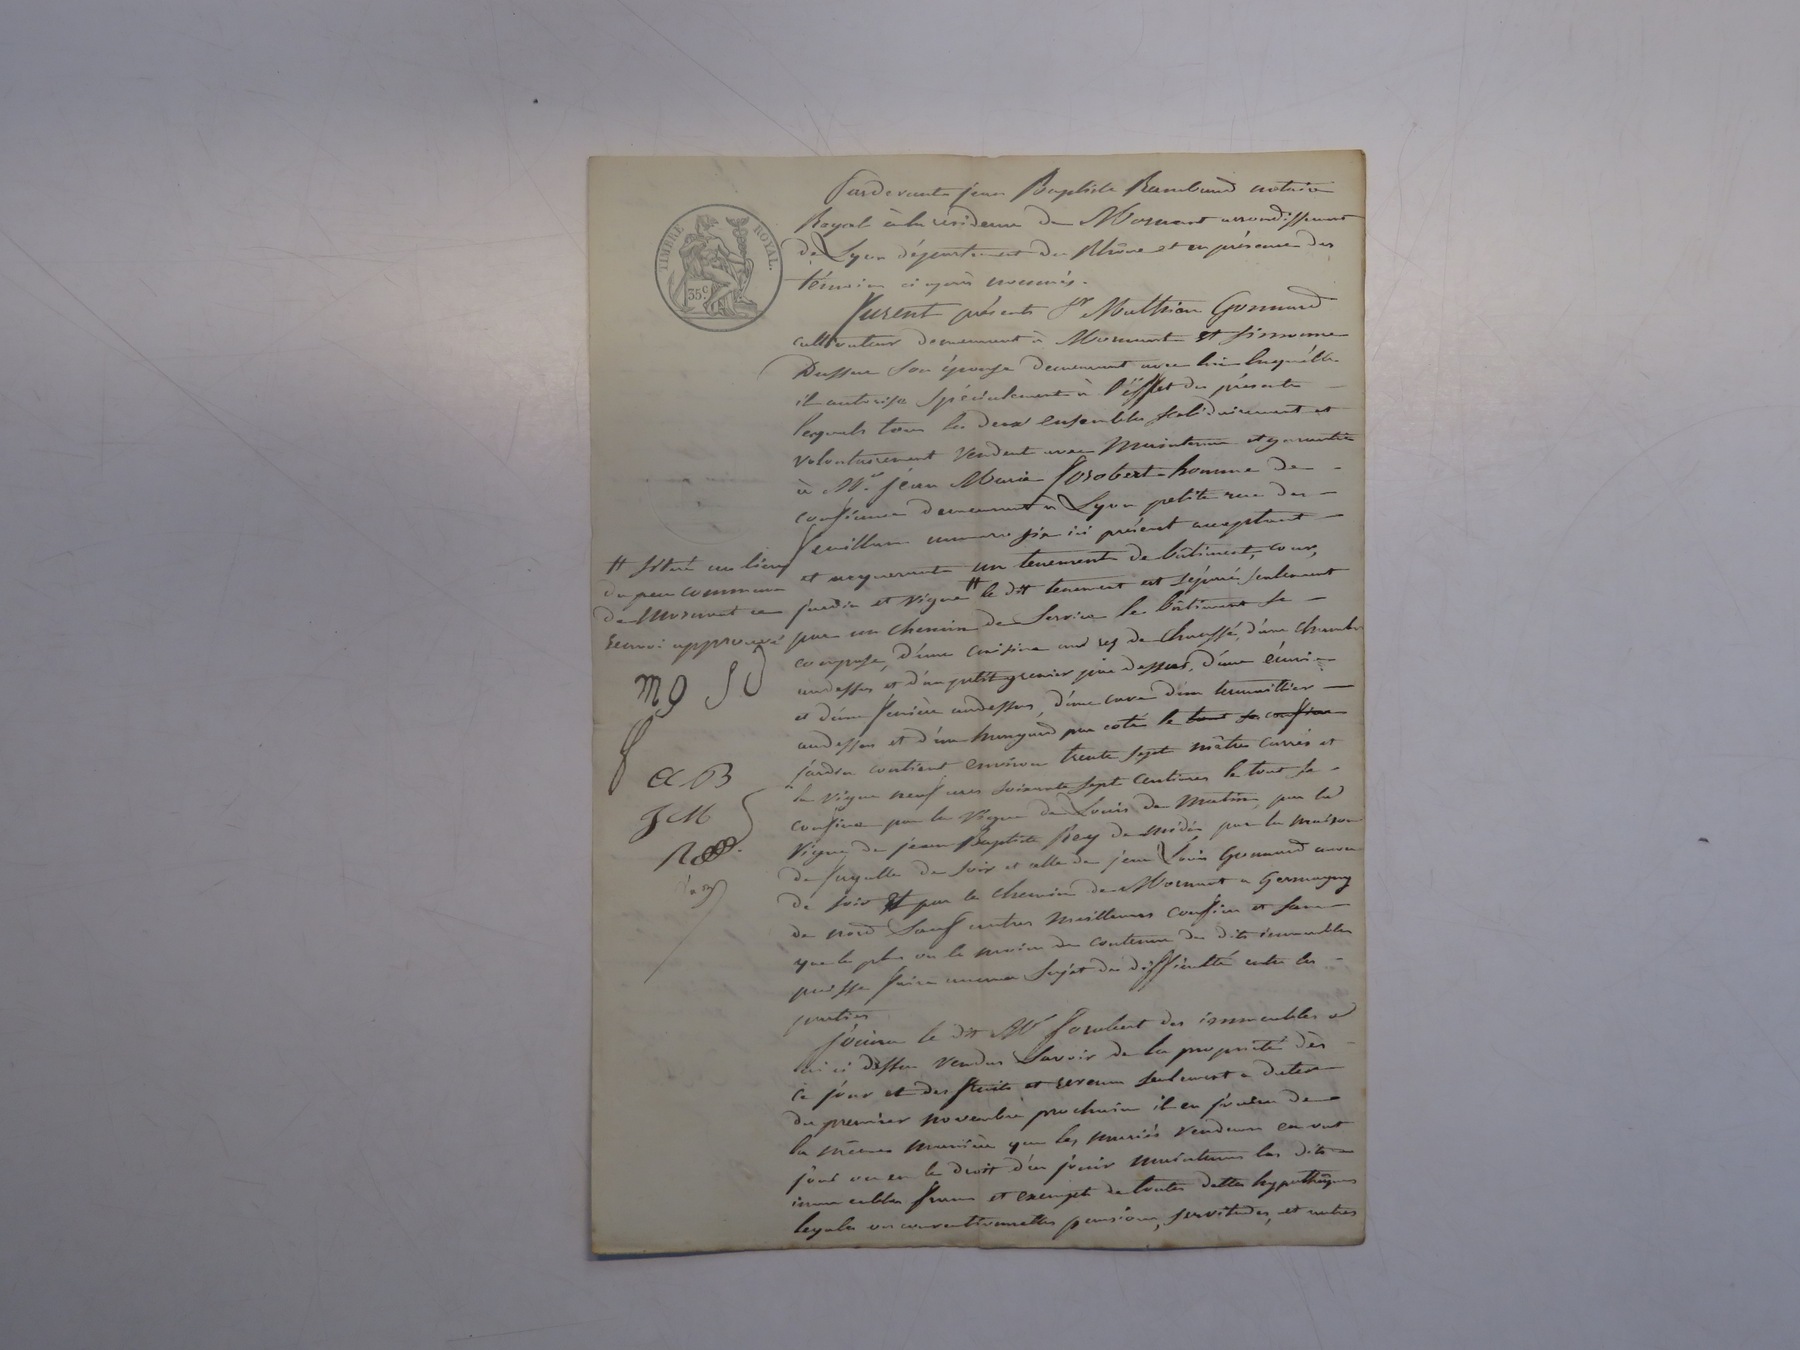 TIMBRE ROYAL.
35 c
Pardevants jean Baptiste Rambaud notaire
Royal à la résidence de Mornant arrondissement
de Lyon département du Rhône et en présence des
témoins ci après nommés.
Furent présents Sr Mathieu Gonnard
cultivateur demeurant à Mornant et
son épouse demeurant avec lui laquelle
il autorise spécialement à l'éffet des présentes
lesquels tous les deux ensembles solidairement et
volontairement vendent avec maintenue et garantie
à Mr jean Marie homme de
confiance demeurant à Lyon petite rue des
feuillans numero six ici présent acceptant
et acquerant un tenement de bâtiment, cour,
jardin et vigne # le dit tenement est séparé seulement
par un chemin de service le bâtiment se
compose, d'une cuisine au rez de chaussé, d'une chambre
audessus et d'un petit grenier par dessus, d'une écurie
et d'une fenière audessus, d'une cave d'un
audessus et d'un hangard par coté le tout se confine
jardin contient environ trente sept mêtres carrés et
la vigne neuf ares soixante sept centiares le tout se
confine par la vigne de Louis de matin, par la
vigne de jean Baptiste Rey de midi par la maison
de de soir et celle de jean Louis Gonnard aussi
de soir et par le chemin de Mornant a Germagny
de nord sauf autres meilleurs confins et sans
que le plus ou le moins de contenue des dits immeubles
puisse faire aucun sujet de difficulté entre les
parties
jouira le dit Mr des immeubles
ci dessus vendus savoir de la propriété dès
ce jour et des fruits et revenus seulement a dater
du premier novembre prochain il en jouira de
la même manière que les mariés vendeurs en ont
joui ou eu le droit d'en jouir maintenus les dits
immeubles francs et exempts de toutes dettes hypothèques
legales ou conventionnelles pensions, servitudes, et autres
# situé au lieu
du peu commun
de Mornant ce
renvoi approuvé
mg
JM